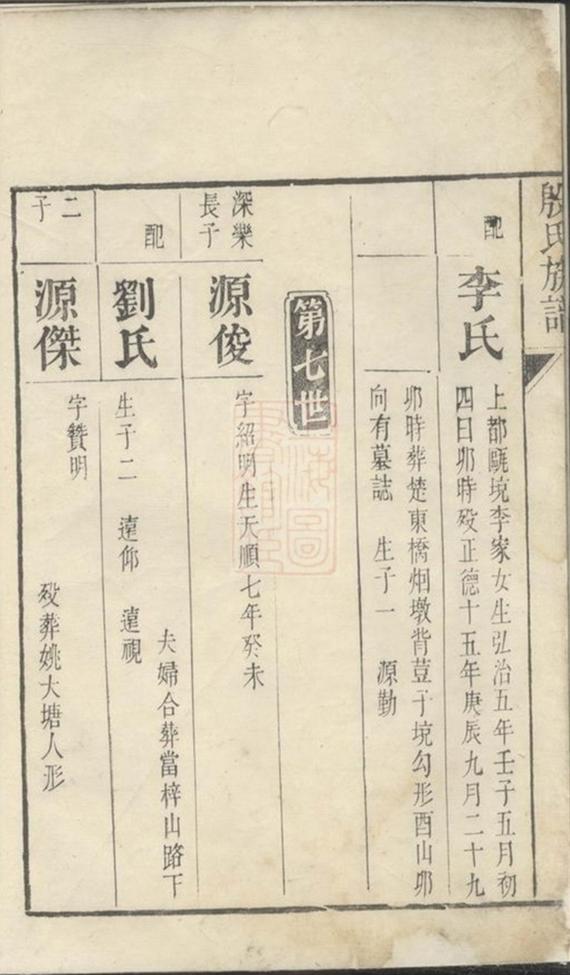 殷氏族譜
配
李氏
上都甌境李家女生弘治五年壬子五月初
四日卯時殁正德十五年庚辰九月二十九
卯時葬楚東橋烟墩背荳子境勾形酉山卯
向有墓誌 生子一 源勤
第七世
深樂
長子
源俊
字紹明生天順七年癸未
夫婦合葬當梓山路下
配
劉氏
生子二 遠仰 遠視
二
子
源傑
字贊明
殁葬姚大塘人形